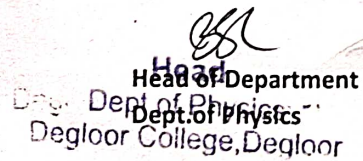 Head
Head of Department
Dept of Physics
Dept.of Physics
Degloor College, Degloor